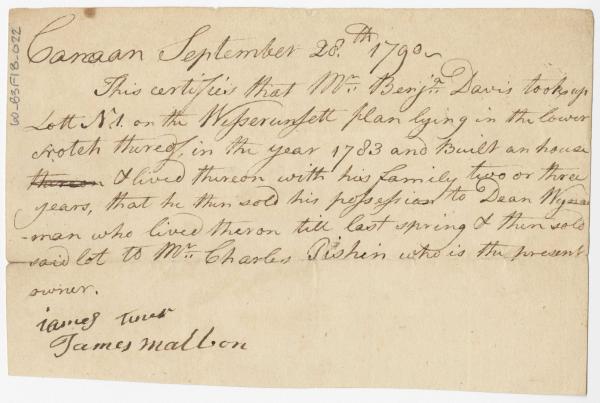 60-B3F1B-022
Canaan September 28.th 1790
This certifies that Mr. Benja. Davis took up
Lott N 1. on the Wesserunsett plan lying in the lower
scotch thereof, in the year 1783 and built an house
thereon & lived thereon with his family two or three
years, that he then sold his possession to Dean Wyman
-man who lived theron till last spring & then sold
said lot to Mr. Charles Pishin who is the present
owner.
iames
James mallon